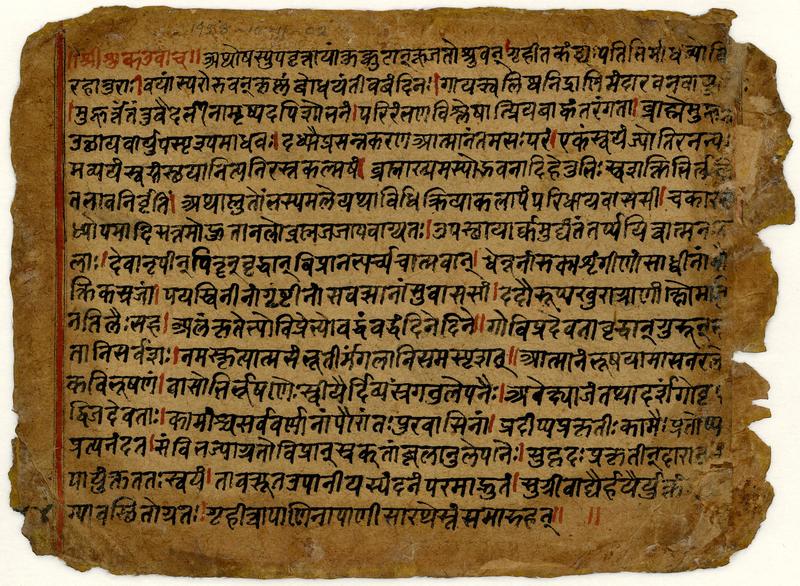 ॥श्रीशुकउवाच॥ अथोषस्युपवृत्तायांकुक्कुटान्कूजतोश्रुवन् गृहीतकंठ्यःपतिभिर्माधव्योवि
रहातुराः।वयांस्यरोरुवन्कृष्णंबोधयंतीवबंदिनः।गायत्स्वलिष्वनिद्राणिमंदारवनवायु
मुहूर्त्तंतंतुवैदर्भीनामृष्यदपिशोभनं।परिरंभणविश्लेषात्प्रियबाह्वंतरंगता।ब्राह्मेमुहूर्त
उत्थायवार्युपस्पृश्यमाधवः।दध्यौप्रसन्नकरणआत्मानंतमसःपरं।एकंस्वयंज्योतिरनन्य
मव्ययंस्वसंस्थयानित्यनिरस्तकल्मषं।ब्रह्माख्यमस्योद्भवनाशहेतुभिःस्वशक्तिभिर्ल
तभावनिर्वृतिं।अथाप्लुतोंभस्यमलेयथाविधिक्रियाकलापंपरिधायवाससी।चकारस
ध्योपगमादिसत्तमोहुतानलोब्रह्मजजापवाग्यतः।उपस्थायार्कमुद्यंतंतर्प्पयित्वात्मनःक
लाः।देवानृषीन्पितॄन्वृद्धान्विप्रानभ्यर्च्यचात्मवान्।धेनूनांरुक्मशृंगीणांसाध्वीनांमौ
क्तिकस्रजां।पयस्विनीनांगृष्टीनांसवत्सानांसुवाससां।ददौरूप्यखुराग्राणांक्षौमाजि
नतिलैःसह।अलंकृतेभ्योविप्रेभ्योबद्वंबद्वंदिनेदिने॥गोविप्रदेवतावृद्धान्गुरून्भू
तानिसर्वशः।नमस्कृत्यात्मसंभूतीर्मंगलानिसमस्पृशत्॥आत्मानंभूषयामासनरलो
कविभूषणं।वासोभिर्भूषणैःस्वीयैर्दिव्यस्रगनुलेपनैः।अवेक्ष्याज्यंतथादर्शंगोवृष
द्विजदेवताः।कामांश्चसर्ववर्णानांपौरांतःपुरचारिणां।प्रदाप्यप्रकृतीःकामैःप्रतोष्य
प्रत्यनंदत।संविभज्याग्रतोविप्रान्स्रक्तांबूलानुलेपनैः।सुहृदःप्रकृतीर्दारान
पायुंक्तततःस्वयं।तावत्सूतउपानीयस्यंदनंपरमाद्भुतं।सुग्रीवाद्यैर्हयैर्युक्तं
म्यावस्थितोग्रतः।गृहीत्वापाणिनापाणीसारथेस्तंसमारुहत्॥ ॥